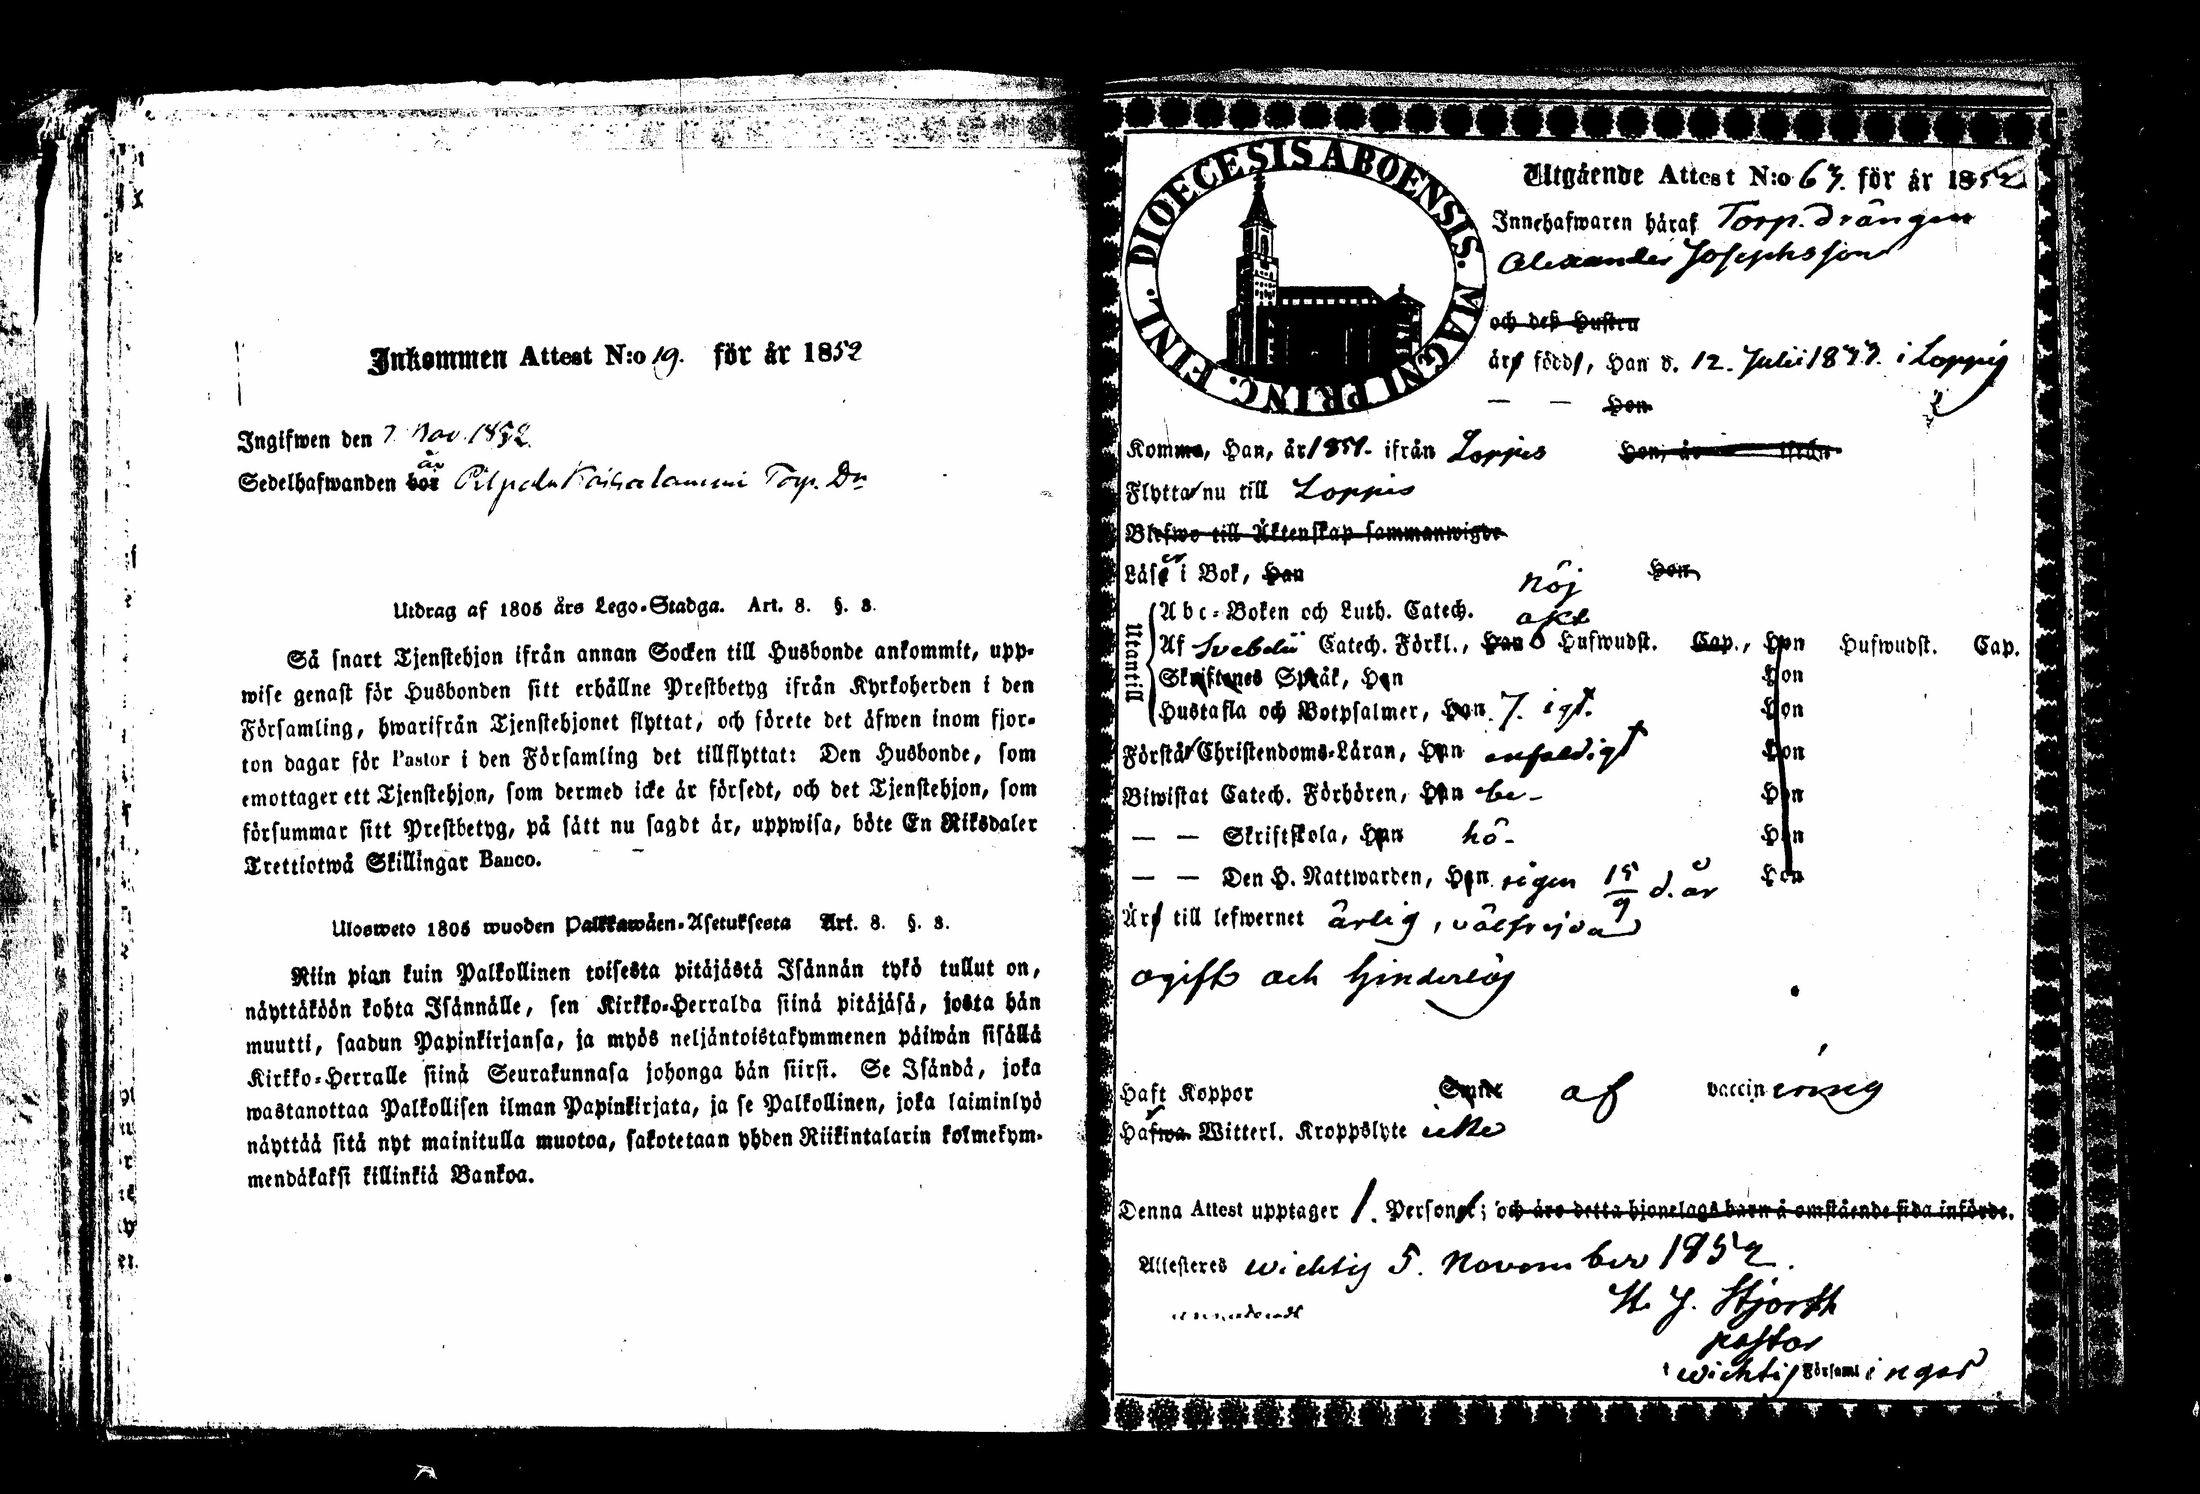 Inkommen Attest N:o 19. för år 1852
Ingifwen den 7 Nov. 1852.
Sedelhafwanden bor är Pilpala Torp. Dr
Utdrag af 1805 års Lego-Stadga. Art. 8. §. 3.
Så snart Tjenstehjon ifrån annan Socken till Husbonde ankommit, upp-
wise genast för Husbonden sitt erhållne Prestbetyg ifrån Kyrkoherden i den
Församling, hwarifrån Tjenstehjonet flyttat, och förete det äfwen inom fjor-
ton dagar för Pastor i den Församling det tillflyttat: Den Husbonde, som
emottager ett Tjenstehjon, som dermed icke är försedt, och det Tjenstehjon, som
försummar sitt Prestbetyg, på sätt nu sagdt är, uppwisa, böte En Riksdaler
Trettiotwå Skillingar Banco.
Ulosweto 1805 wuoden Palkkawäen-Asetuksesta Art. 8. §. 3.
Niin pian kuin Palkollinen toisesta pitäjästä Isännän tykö tullut on,
näyttäköön kohta Isännälle, sen Kirkko-Herralda siinä pitäjäsä, josta hän
muutti, saadun Papinkirjansa, ja myös neljäntoistakymmenen päiwän sisällä
Kirkko-Herralle siinä Seurakunnasa johonga hän siirsi. Se Isändä, joka
wastanottaa Palkollisen ilman Papinkirjata, ja se Palkollinen, joka laiminlyö
näyttää sitä nyt mainitulla muotoa, sakotetaan yhden Riikintalarin kolmekym-
mendäkaksi killinkiä Bankoa.
DIOECESIS ABOENSIS. MAGNI PRINC. FINL.
Utgående Attest N:o 67. för år 1852
Innehafwaren häraf Torp. drängen
Alexander Josephsson
och des Hustru
är född, Han d. 12. Julii i Loppis
— — Hon
Komm, Han, år 1851. ifrån Loppis Hon, år ifrån
Flyttar nu till Loppis
Blefwo till Äktenskap sammanwigde
Läser i Bok, Han nöj Hon
Utantill
Abc-Boken och Luth. Catech. akt
Af Svebelii Catech. Förkl., Han 6 Hufwudst. Cap., Hon Hufwudst. Cap.
Skriftenes Språk, Han Hon
Hustafla och Botpsalmer, Han 7. igt. Hon
Förstår Christendoms-Läran, Han enfaldigt Hon
Biwistat Catech. Förhören, Han be- Hon
— — Skriftskola, Han hö- Hon
— — Den H. Nattwarden, Han rigen 15/9 d. år Hon
Är till lefwernet ärlig, välfrejdad
ogift och hinderlös
Haft Koppor Smitt af vaccinering
Hafwa Witterl. Kroppslyte icke
Denna Attest upptager 1. Person; och äro detta hjonelags barn å omstående sida införde.
Attesteres wichtis 5. November 1852.
H. J. Hjorth
pastor
i wichtis Församlingar